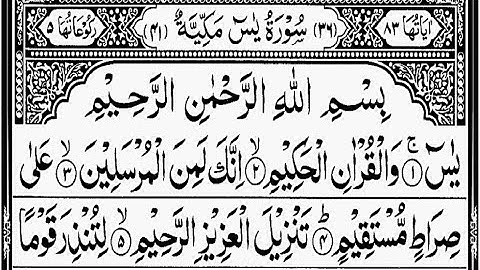 اٰيَاتُهَا ٨٣ (٣٦) سُوْرَةُ يٰسٓ مَكِّيَّةٌ (٤١) رُكُوْعَاتُهَا ٥
بِسْمِ اللّٰهِ الرَّحْمٰنِ الرَّحِيْمِ
يٰسٓ ۚ ١ وَالْقُرْاٰنِ الْحَكِيْمِ ۙ ٢ اِنَّكَ لَمِنَ الْمُرْسَلِيْنَ ۙ ٣ عَلٰى
صِرَاطٍ مُّسْتَقِيْمٍ ؕ ٤ تَنْزِيْلَ الْعَزِيْزِ الرَّحِيْمِ ۙ ٥ لِتُنْذِرَ قَوْمًا